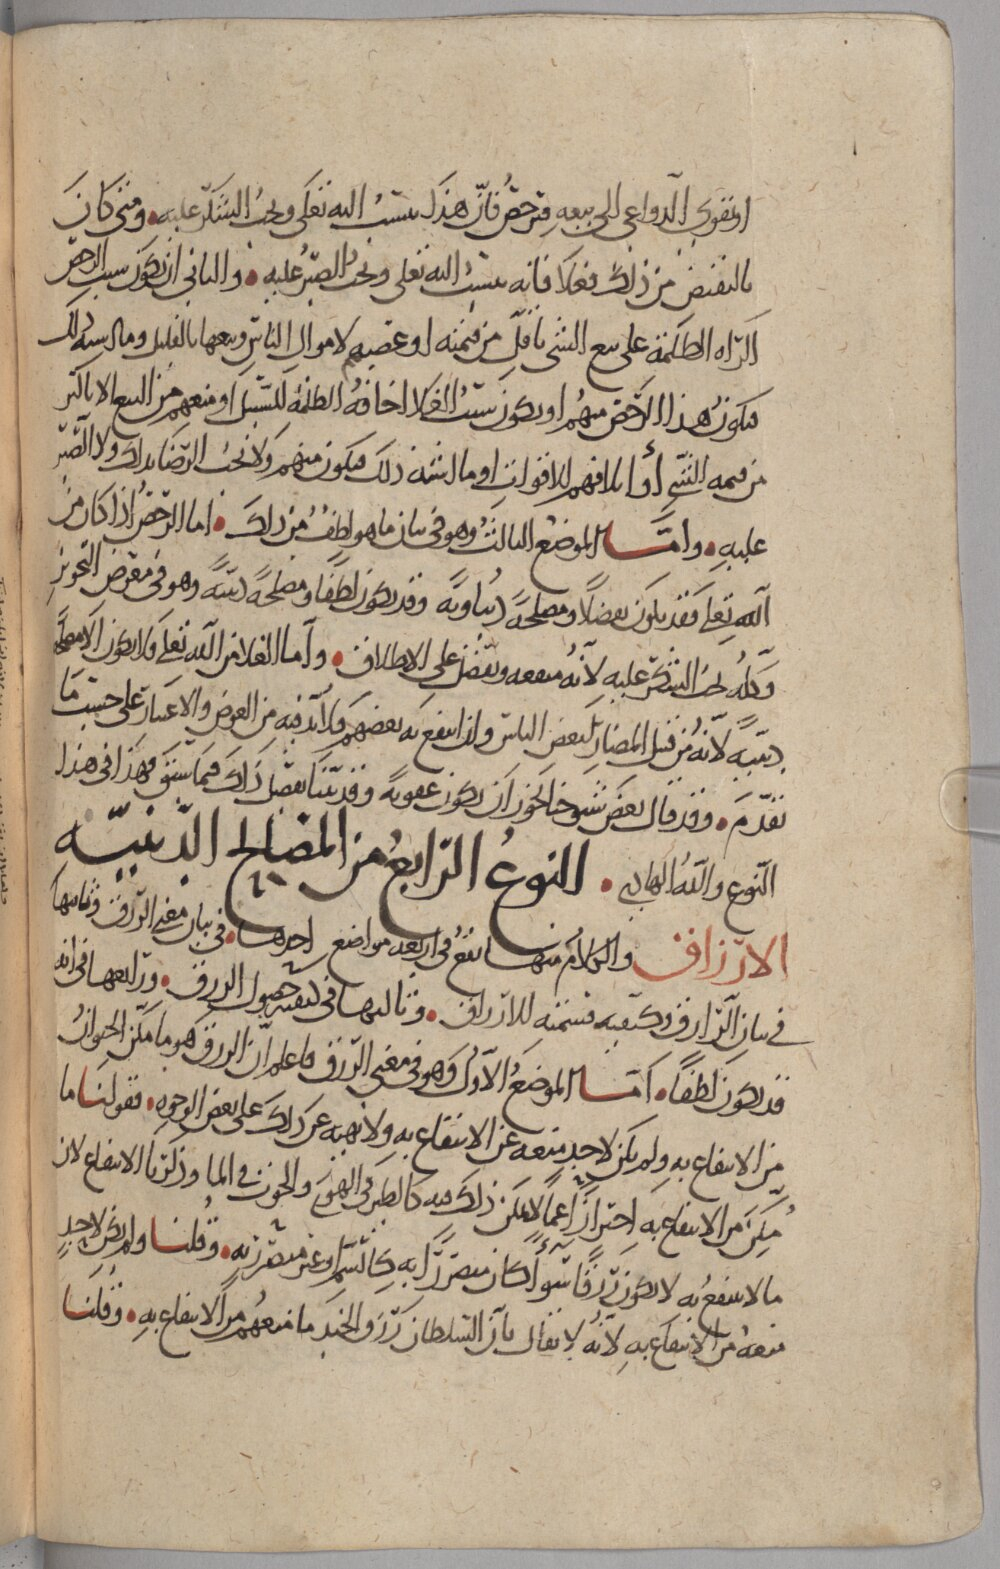 او تقوى الدواعي الى بيعه فترخص فان هذا ينسب الى الله تعالى ويجب الشكر عليه ومتى كان
بالنقيض من ذلك فغلا فانه ينسب الى الله تعلى ويجب الصبر عليه والثاني ان يكون سبب الرخص
اكراه الظلمة على بيع الشي باقل من قيمته او غصبهم لاموال الناس وبيعها بالقليل وما اشبه ذلك
فيكون هذا الرخص منهم او يكون سبب الغلا اخافة الظلمة للسبيل او منعهم من البيع الا باكثر
من قيمة الشي أو اتلافهم للاقوات او ما اشبه ذلك فيكون منهم ولا يجب الرضا بذلك ولا الصبر
عليه وامـا الموضع الثالث وهو في بيان ما هو لطف من ذلك اما الرخص اذا كان من
الله تعلى فقد يكون تفضلا ومصلحة دنياوية وقد يكون لطفا ومصلحة دينية وهو في معرض التجويز
وكله يجب الشكر عليه لانه منفعة وتفضل على الاطلاق وأما الغلا من الله تعلى فلا يكون الا مصلحة
دينية لانه من قبيل المضار لبعض الناس وان انتفع به بعضهم فلا بد فيه من العوض والاعتبار على حسب ما
تقدم وقد قال بعض شيوخنا يجوز ان يكون عقوبة وقد بينا تفصيل ذلك فيما سبق فهذا في هذا
النوع والله الهادي النوع الرابع من المصالح الدينيه
الارزاق والكلام منها يقع في اربعة مواضع احدها في بيان معنى الرزق وثانيها
في بيان الرازق وكيفية قسمته للارزاق وثالثها في كيفية حصول الرزق ورابعها في انه
قد يكون لطفا أمـا الموضع الاول وهو في معنى الرزق فاعلم ان الرزق هو ما مكن الحيوان
من الانتفاع به ولم يكن لاحد منعه عن الانتفاع به ولا نهيه عن ذلك على بعض الوجوه فقولنا ما
مكن من الانتفاع به احترازا عما لا يمكن ذلك فيه كالطير في الهوى والحوت في الما وذكرنا الانتفاع لان
ما لا ينتفع به لا يكون رزقا سوآء كان متضررا به كالسم او غير متضرر به وقلنا ولم يكن لاحد
منعه من الانتفاع به لانه لا يقال بان السلطان رزق الجند ما منعهم من الانتفاع به وقلنا